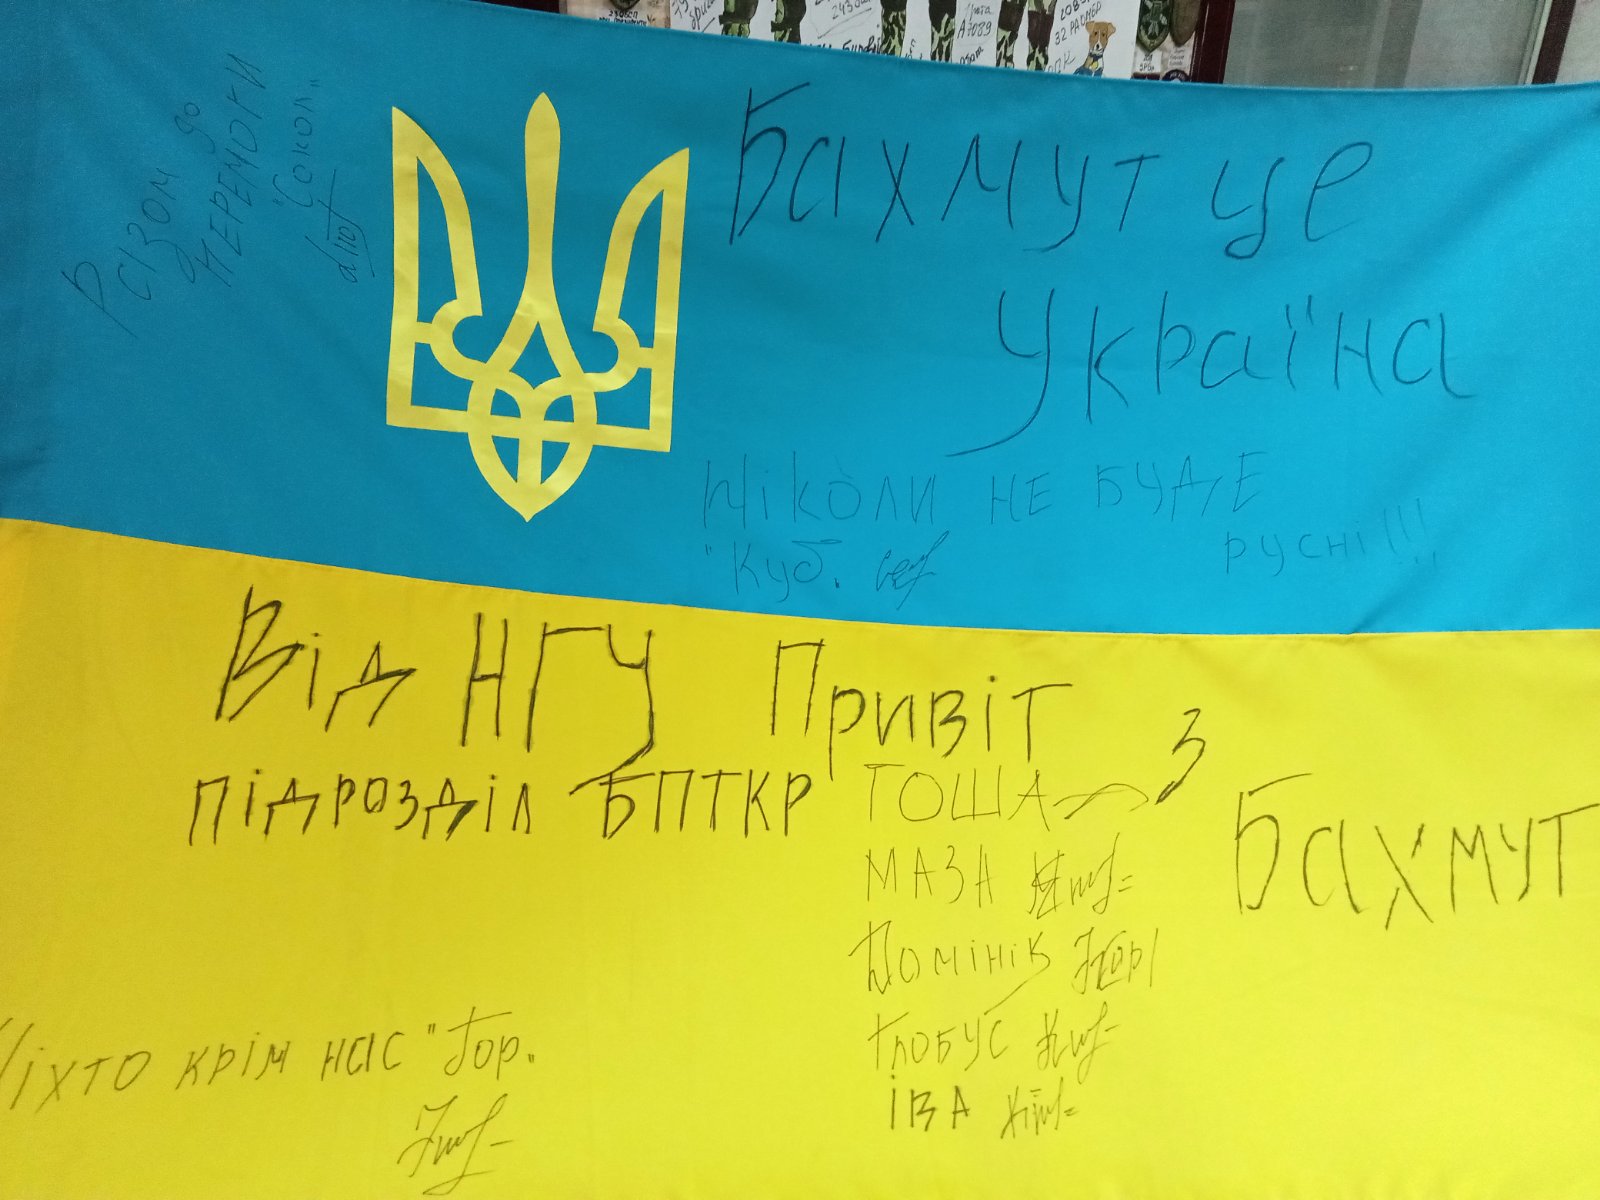 Рсізом до
ПЕРЕМОГИ
"Сокол"
Бахмут це
Україна
Ніколи НЕ БУДЕ
русні!!!
"Куб.
Від НГУ Привіт з
Бахмут
підрозділ БПТКР
ГОША
МАЗА
Домінік
Глобус
ІВА
Ніхто крім нас "Гор"